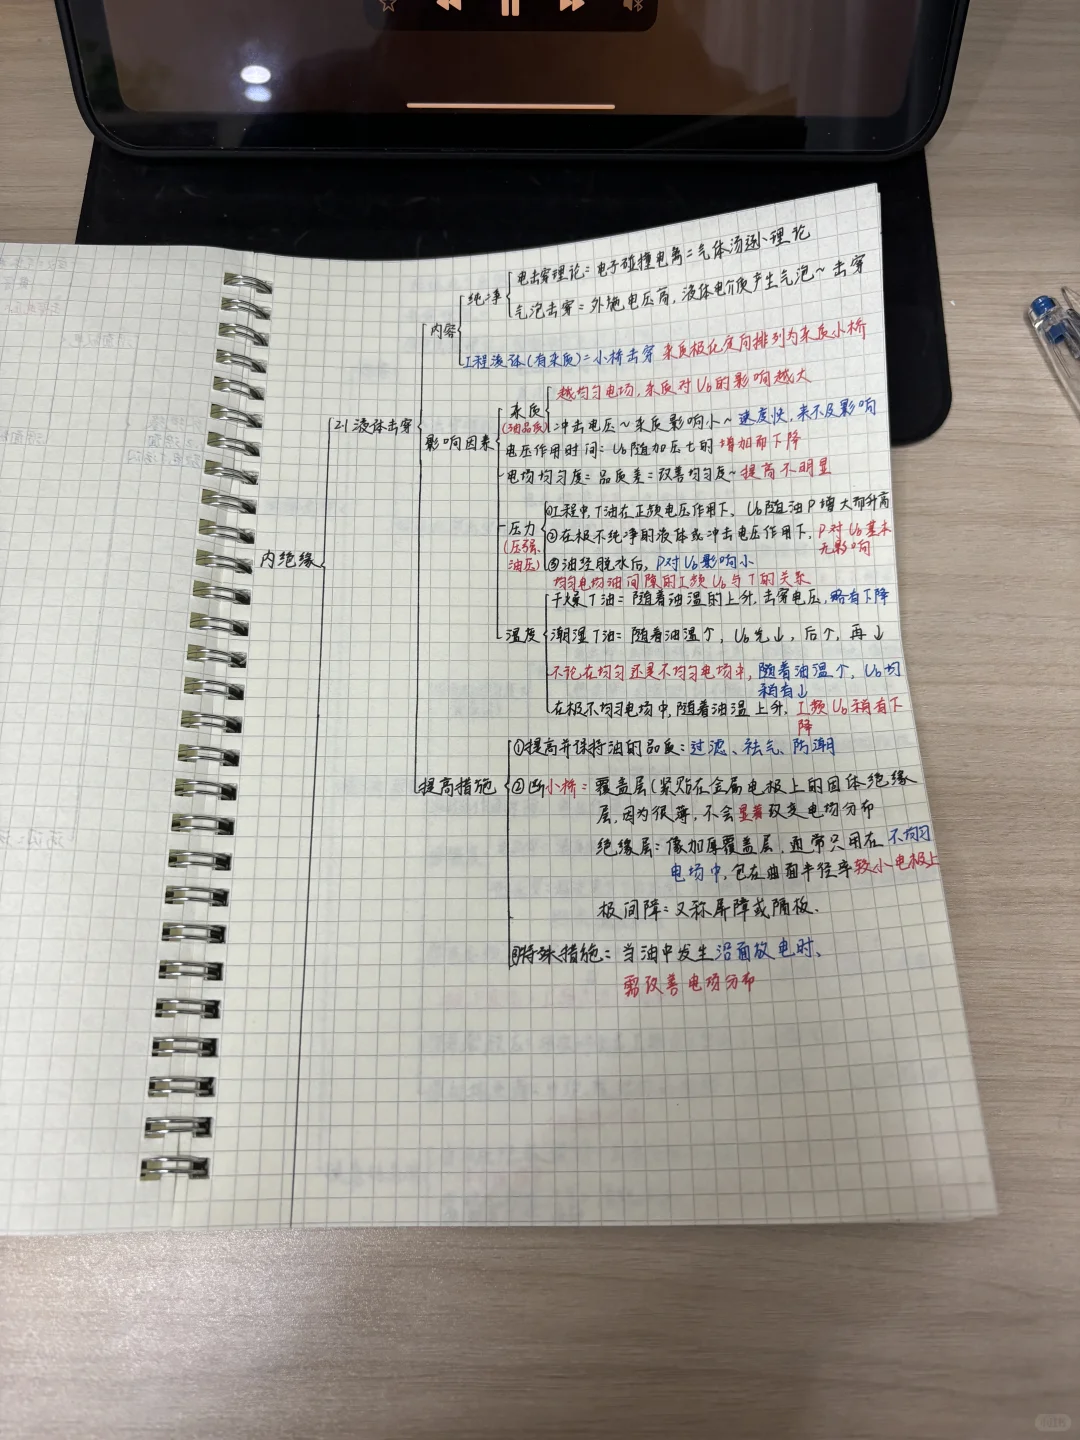 电击穿理论=电子碰撞电离=气体汤逊小理论
纯净
气泡击穿=外施电压高,液体电介质产生气泡~击穿
内容
工程液体(有杂质)=小桥击穿 杂质极化定向排列为杂质小桥
越均匀电场,杂质对Ub的影响越大
杂质
(油品质)
冲击电压~杂质影响小~速度快,来不及影响
2.1 液体击穿
影响因素
电压作用时间=Ub随加压t的增加而下降
电场均匀度=品质差=改善均匀度~提高不明显
①工程中,T油在工频电压作用下,Ub随油P增大而升高
压力
(压强、油压)
②在极不纯净的液体或冲击电压作用下,P对Ub基本无影响
③油经脱水后,P对Ub影响小
内绝缘
均匀电场油间隙的工频Ub与T的关系
干燥T油=随着油温的上升,击穿电压,略有下降
温度
潮湿T油=随着油温↑,Ub先↓,后↑,再↓
不论在均匀还是不均匀电场中,随着油温↑,Ub均
稍有↓
在极不均匀电场中,随着油温上升,工频Ub稍有下
降
①提高并保持油的品质:过滤、祛气、防潮
提高措施
②断小桥:覆盖层(紧贴在金属电极上的固体绝缘
层,因为很薄,不会显著改变电场分布
绝缘层:像加厚覆盖层,通常只用在不均匀
电场中,包在曲面半径率较小电极上
极间障:又称屏障或隔板.
特殊措施:当油中发生沿面放电时、
需改善电场分布